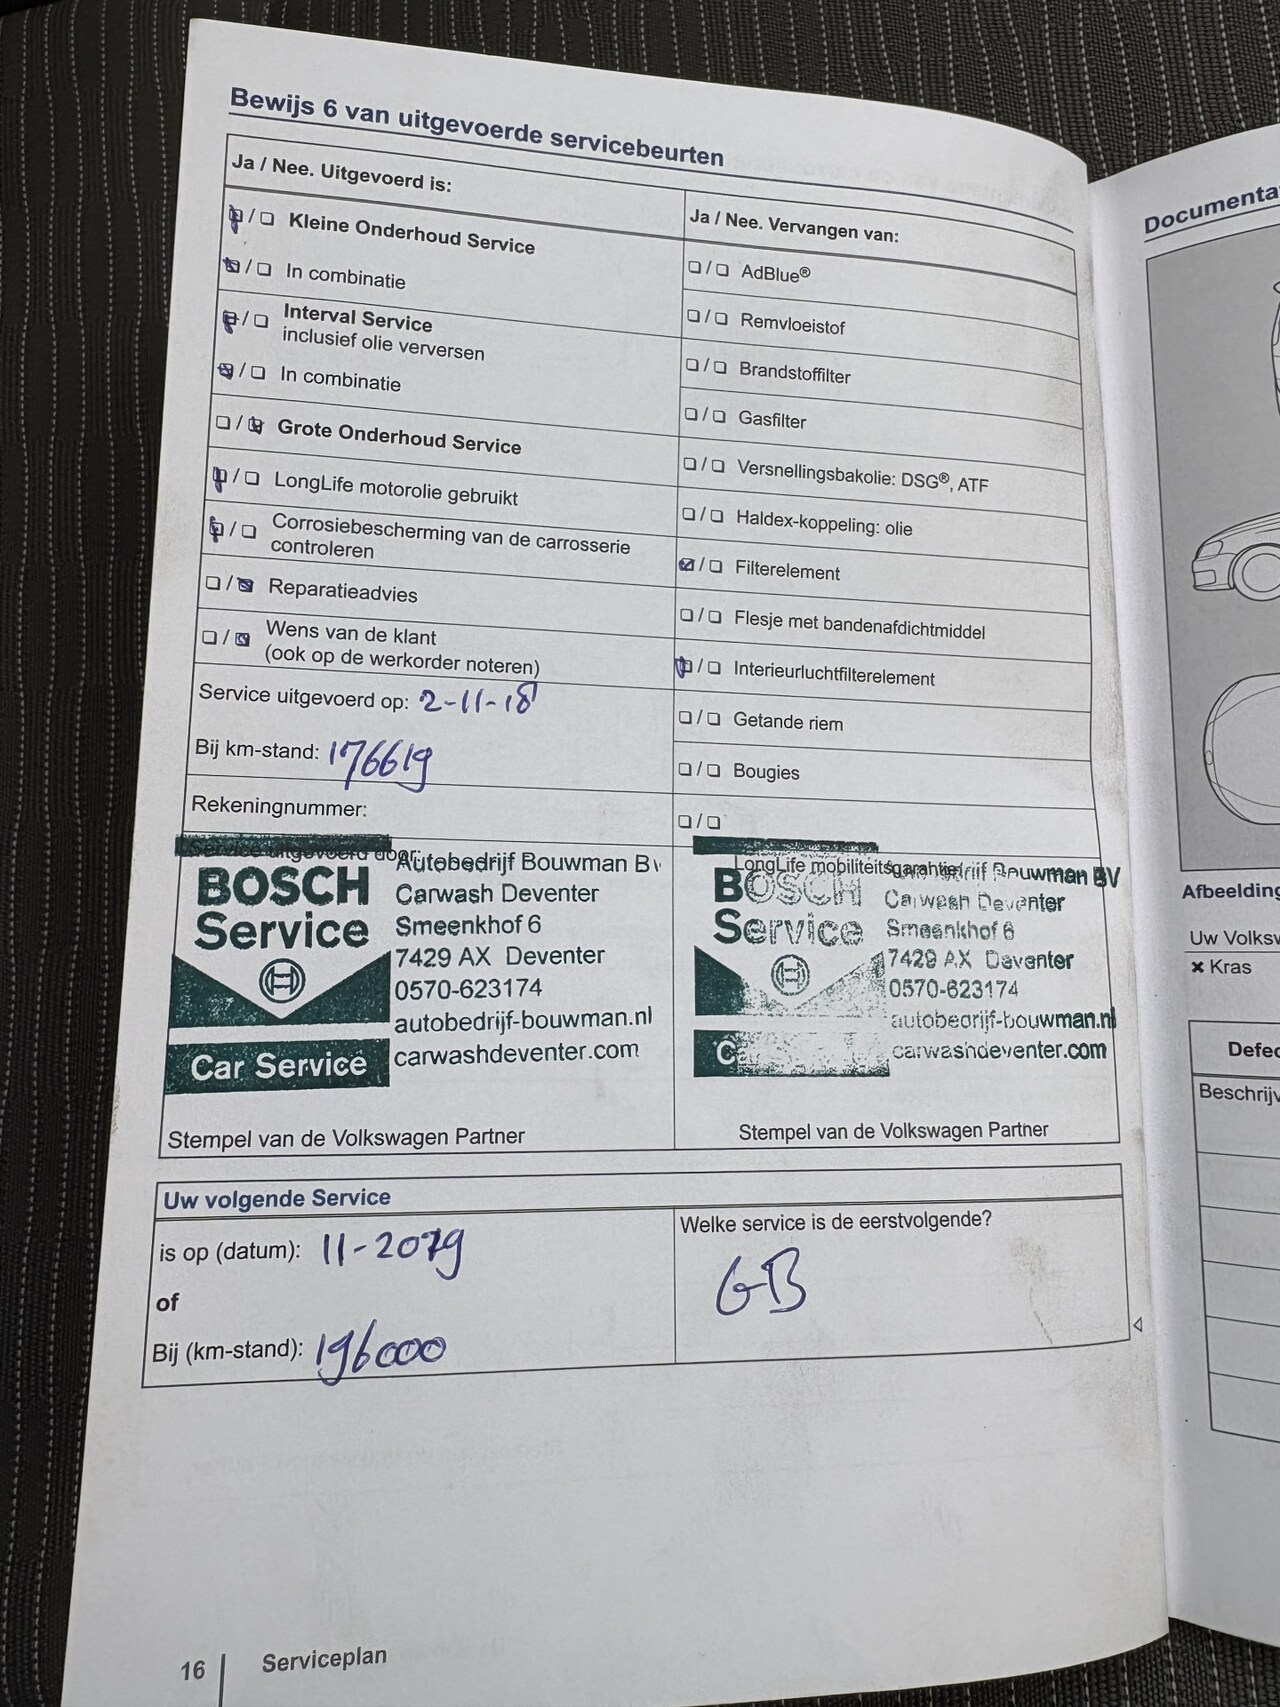 Bewijs 6 van uitgevoerde servicebeurten
Ja / Nee. Uitgevoerd is:
/ Kleine Onderhoud Service
/ In combinatie
/ Interval Service
inclusief olie verversen
/ In combinatie
/ Grote Onderhoud Service
/ LongLife motorolie gebruikt
/ Corrosiebescherming van de carrosserie
controleren
/ Reparatieadvies
/ Wens van de klant
(ook op de werkorder noteren)
Service uitgevoerd op: 2-11-18
Bij km-stand: 176619
Rekeningnummer:
Service uitgevoerd door:
Autobedrijf Bouwman BV
BOSCH
Service
Carwash Deventer
Smeenkhof 6
7429 AX Deventer
0570-623174
autobedrijf-bouwman.nl
Car Service
carwashdeventer.com
Stempel van de Volkswagen Partner
Ja / Nee. Vervangen van:
/ AdBlue®
/ Remvloeistof
/ Brandstoffilter
/ Gasfilter
/ Versnellingsbakolie: DSG®, ATF
/ Haldex-koppeling: olie
/ Filterelement
/ Flesje met bandenafdichtmiddel
/ Interieurluchtfilterelement
/ Getande riem
/ Bougies
/
LongLife mobiliteitsgarantie
Bouwman BV
BOSCH
Service
Carwash Deventer
Smeenkhof 6
7429 AX Deventer
0570-623174
autobedrijf-bouwman.nl
carwashdeventer.com
Stempel van de Volkswagen Partner
Uw volgende Service
is op (datum): 11-2019
of
Bij (km-stand): 196000
Welke service is de eerstvolgende?
GB
16 Serviceplan
Documenta
Afbeelding
Uw Volksw
× Kras
Defec
Beschrijv